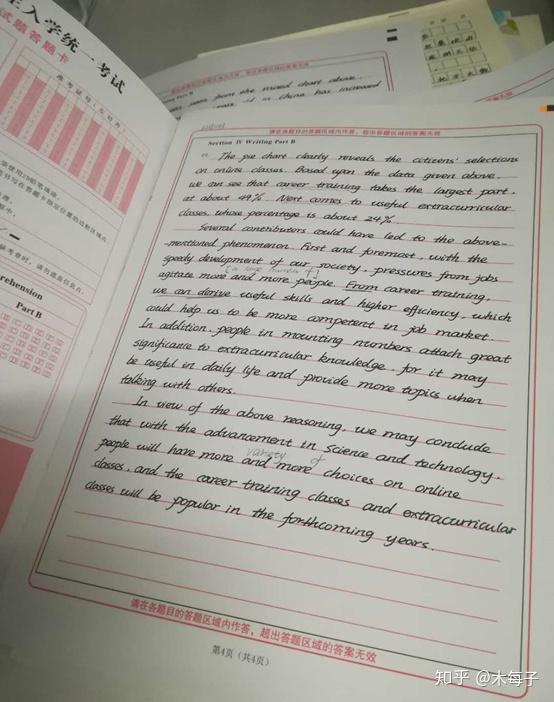 生入学统一考试
试题答题卡
Part B
seen from the mixed chart above
in china has increased
请在各题目的答题区域内作答，超出答题区域的答案无效
Section IV Writing Part B
The pie chart clearly reveals the citizens' selections
on online classes. Based upon the data given above,
we can see that career training takes the largest part,
at about 49%. Next comes to useful extracurricular
classes, whose percentage is about 24%.
Several contributors could have led to the above-
-mentioned phenomenon. First and foremost, with the
speedy development of our society, pressures from jobs
(a large number of)
agitate more and more people. From career training,
we can derive useful skills and higher efficiency, which
could help us to be more competent in job market.
In addition, people in mounting numbers attach great
significance to extracurricular knowledge, for it may
be useful in daily life and provide more topics when
talking with others.
In view of the above reasoning, we may conclude
that with the advancement in science and technology,
variety of
people will have more and more choices on online
classes, and the career training classes and extracurricular
classes will be popular in the forthcoming years.
请在各题目的答题区域内作答，超出答题区域的答案无效
第4页（共4页）
知乎 @木每子